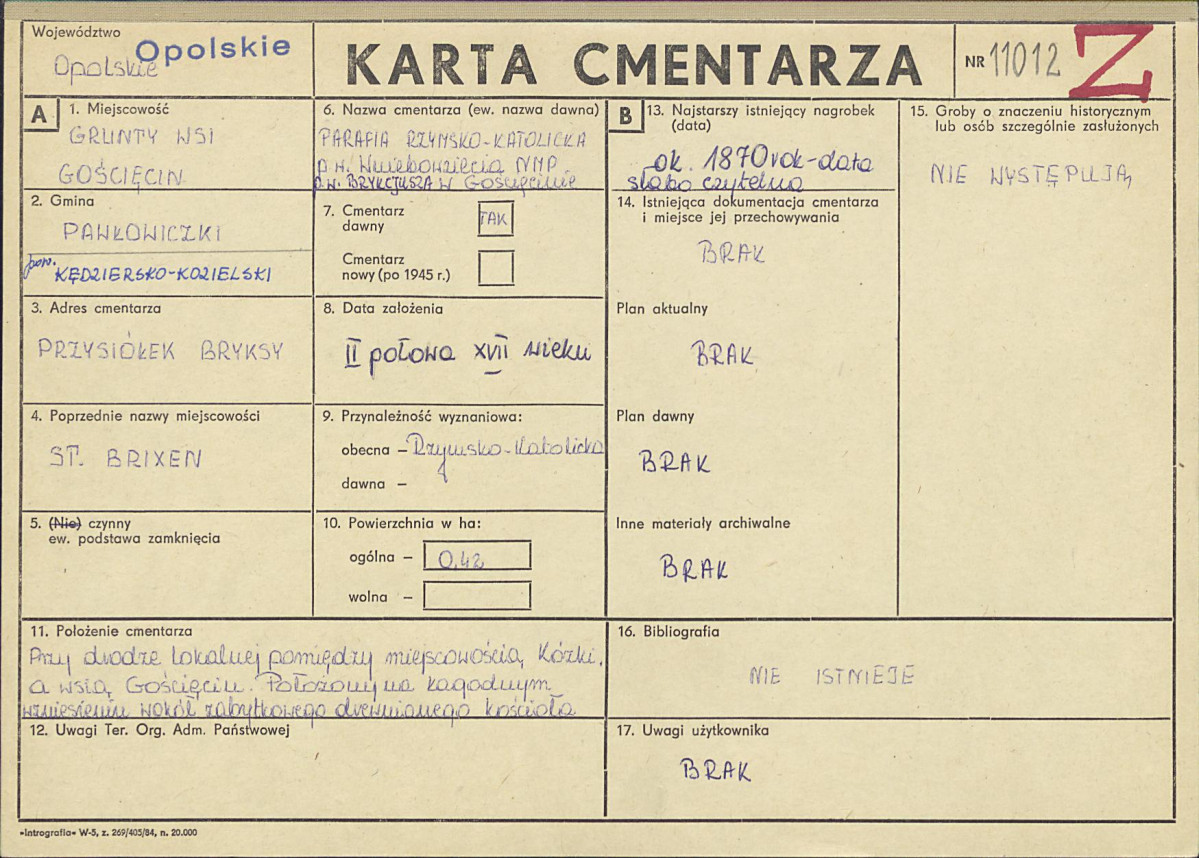 Województwo
Opolskie
Opolskie
KARTA CMENTARZA
NR 11012
Z
A
1. Miejscowość
GRUNTY WSI
GOŚCIĘCIN
2. Gmina
PAWŁOWICZKI
pow.
KĘDZIERSKO-KOZIELSKI
3. Adres cmentarza
PRZYSIÓŁEK BRYKSY
4. Poprzednie nazwy miejscowości
ST. BRIXEN
5. (Nie) czynny
ew. podstawa zamknięcia
6. Nazwa cmentarza (ew. nazwa dawna)
PARAFIA RZYMSKO-KATOLICKA
p.w. Wniebowzięcia NMP
p.w. BRYKCJUSZA w Gościęcinie
7. Cmentarz
dawny
TAK
Cmentarz
nowy (po 1945 r.)
8. Data założenia
II połowa XVII wieku
9. Przynależność wyznaniowa:
obecna – Rzymsko-Katolicka
dawna –
10. Powierzchnia w ha:
ogólna – 0,42
wolna –
11. Położenie cmentarza
Przy drodze lokalnej pomiędzy miejscowością Kózki,
a wsią Gościęcin. Położony na łagodnym
wzniesieniu wokół zabytkowego drewnianego kościoła
12. Uwagi Ter. Org. Adm. Państwowej
B
13. Najstarszy istniejący nagrobek
(data)
ok. 1870 rok – data
słabo czytelna
14. Istniejąca dokumentacja cmentarza
i miejsce jej przechowywania
BRAK
Plan aktualny
BRAK
Plan dawny
BRAK
Inne materiały archiwalne
BRAK
15. Groby o znaczeniu historycznym
lub osób szczególnie zasłużonych
NIE WYSTĘPUJĄ
16. Bibliografia
NIE ISTNIEJE
17. Uwagi użytkownika
BRAK
«Introgrofia» W-5, z. 269/405/84, n. 20.000